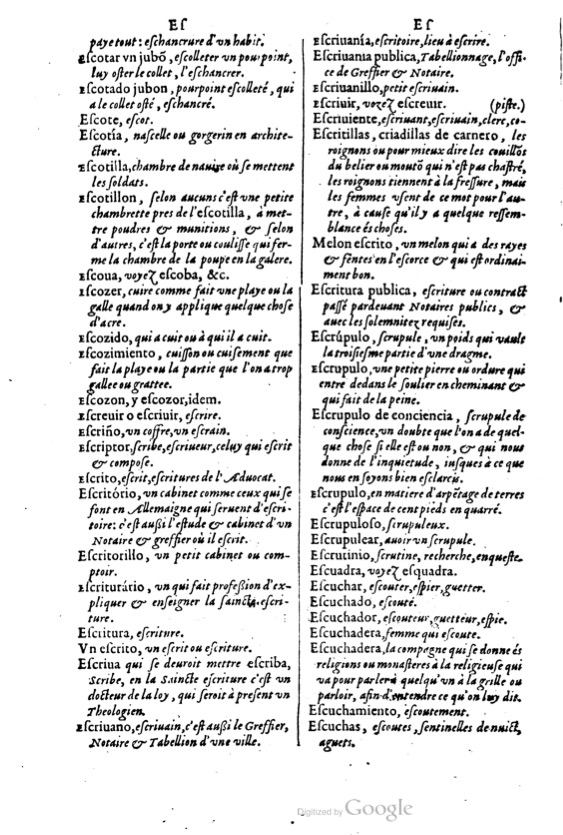 Eſ
paye tout: eſchancrure d'vn habit.
Eſcotar vn jubō, eſcolleter vn pourpoint,
luy oſter le collet, l'eſchancrer.
Eſcotado jubon, pourpoint eſcolleté, qui
a le collet oſté, eſchancré.
Eſcote, eſcot.
Eſcotía, naſcelle ou gorgerin en archite-
cture.
Eſcotilla, chambre de nauire où ſe mettent
les ſoldats.
Eſcotillon, ſelon aucuns c'eſt vne petite
chambrette pres de l'eſcotilla, à met-
tre poudres & munitions, & ſelon
d'autres, c'eſt la porte ou couliſſe qui fer-
me la chambre de la poupe en la galere.
Eſcoua, voyez eſcoba, &c.
Eſcozer, cuire comme fait vne playe ou la
galle quand on y applique quelque choſe
d'acre.
Eſcozido, qui a cuit ou à qui il a cuit.
Eſcozimiento, cuiſſon ou cuiſement que
fait la playe ou la partie que l'on a trop
gallee ou grattee.
Eſcozon, y eſcozor, idem.
Eſcreuir o eſcriuir, eſcrire.
Eſcriño, vn coffre, vn eſcrain.
Eſcriptor, ſcribe, eſcriueur, celuy qui eſcrit
& compoſe.
Eſcrito, eſcrit, eſcritures de l'Aduocat.
Eſcritório, vn cabinet comme ceux qui ſe
font en Allemaigne qui ſeruent d'eſcri-
toire: c'eſt auſſi l'eſtude & cabinet d'vn
Notaire & greffier où il eſcrit.
Eſcritorillo, vn petit cabinet ou com-
ptoir.
Eſcriturário, vn qui fait profeſſion d'ex-
pliquer & enſeigner la ſaincte eſcri-
ture.
Eſcritura, eſcriture.
Vn eſcrito, vn eſcrit ou eſcriture.
Eſcriua qui ſe deuroit mettre eſcriba,
Scribe, en la Saincte eſcriture c'eſt vn
docteur de la loy, qui ſeroit à preſent vn
Theologien.
Eſcriuano, eſcriuain, c'eſt auſſi le Greffier,
Notaire & Tabellion d'vne ville.
Eſ
Eſcriuanía, eſcritoire, lieu à eſcrire.
Eſcriuania publica, Tabellionnage, l'offi-
ce de Greffier & Notaire.
Eſcriuanillo, petit eſcriuain.
Eſcriuir, voyez eſcreuir. (piſte.)
Eſcriuiente, eſcriuant, eſcriuain, clerc, co-
Eſcritillas, criadillas de carnero, les
roignons ou pour mieux dire les couillōs
du belier ou moutō qui n'eſt pas chaſtré,
les roignons tiennent à la freſſure, mais
les femmes vſent de ce mot pour l'au-
tre, à cauſe qu'il y a quelque reſſem-
blance és choſes.
Melon eſcrito, vn melon qui a des rayes
& fentes en l'eſcorce & qui eſt ordinai-
ment bon.
Eſcritura publica, eſcriture ou contract
paſſé pardeuant Notaires publics, &
auec les ſolemnitez requiſes.
Eſcrúpulo, ſcrupule, vn poids qui vault
la troiſieſme partie d'vne dragme.
Eſcrupulo, vne petite pierre ou ordure qui
entre dedans le ſoulier en cheminant &
qui fait de la peine.
Eſcrupulo de conciencia, ſcrupule de
conſcience, vn doubte que l'on a de quel-
que choſe ſi elle eſt ou non, & qui nous
donne de l'inquietude, iuſques à ce que
nous en ſoyons bien eſclarcis.
Eſcrupulo, en matiere d'arpētage de terres
c'eſt l'eſpace de cent pieds en quarré.
Eſcrupuloſo, ſcrupuleux.
Eſcrupulear, auoir vn ſcrupule.
Eſcrutinio, ſcrutine, recherche, enqueſte.
Eſcuadra, voyez eſquadra.
Eſcuchar, eſcouter, eſpier, guetter.
Eſcuchado, eſcouté.
Eſcuchador, eſcouteur, guetteur, eſpie.
Eſcuchadera, femme qui eſcoute.
Eſcuchadera, la compagne qui ſe donne és
religions ou monaſteres à la religieuſe qui
va pour parler à quelqu'vn à la grille ou
parloir, afin d'entendre ce qu'on luy dit.
Eſcuchamiento, eſcoutement.
Eſcuchas, eſcoutes, ſentinelles de nuict,
aguets.
Digitized by Google